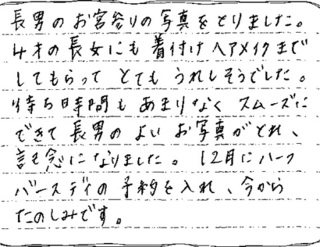 長男のお宮参りの写真をとりました。
4才の長女にも着付けヘアメイクまで
してもらってとてもうれしそうでした。
待ち時間もあまりなくスムーズに
できて長男のよいお写真がとれ、
記念になりました。12月にハーフ
バースディの予約を入れ、今から
たのしみです。